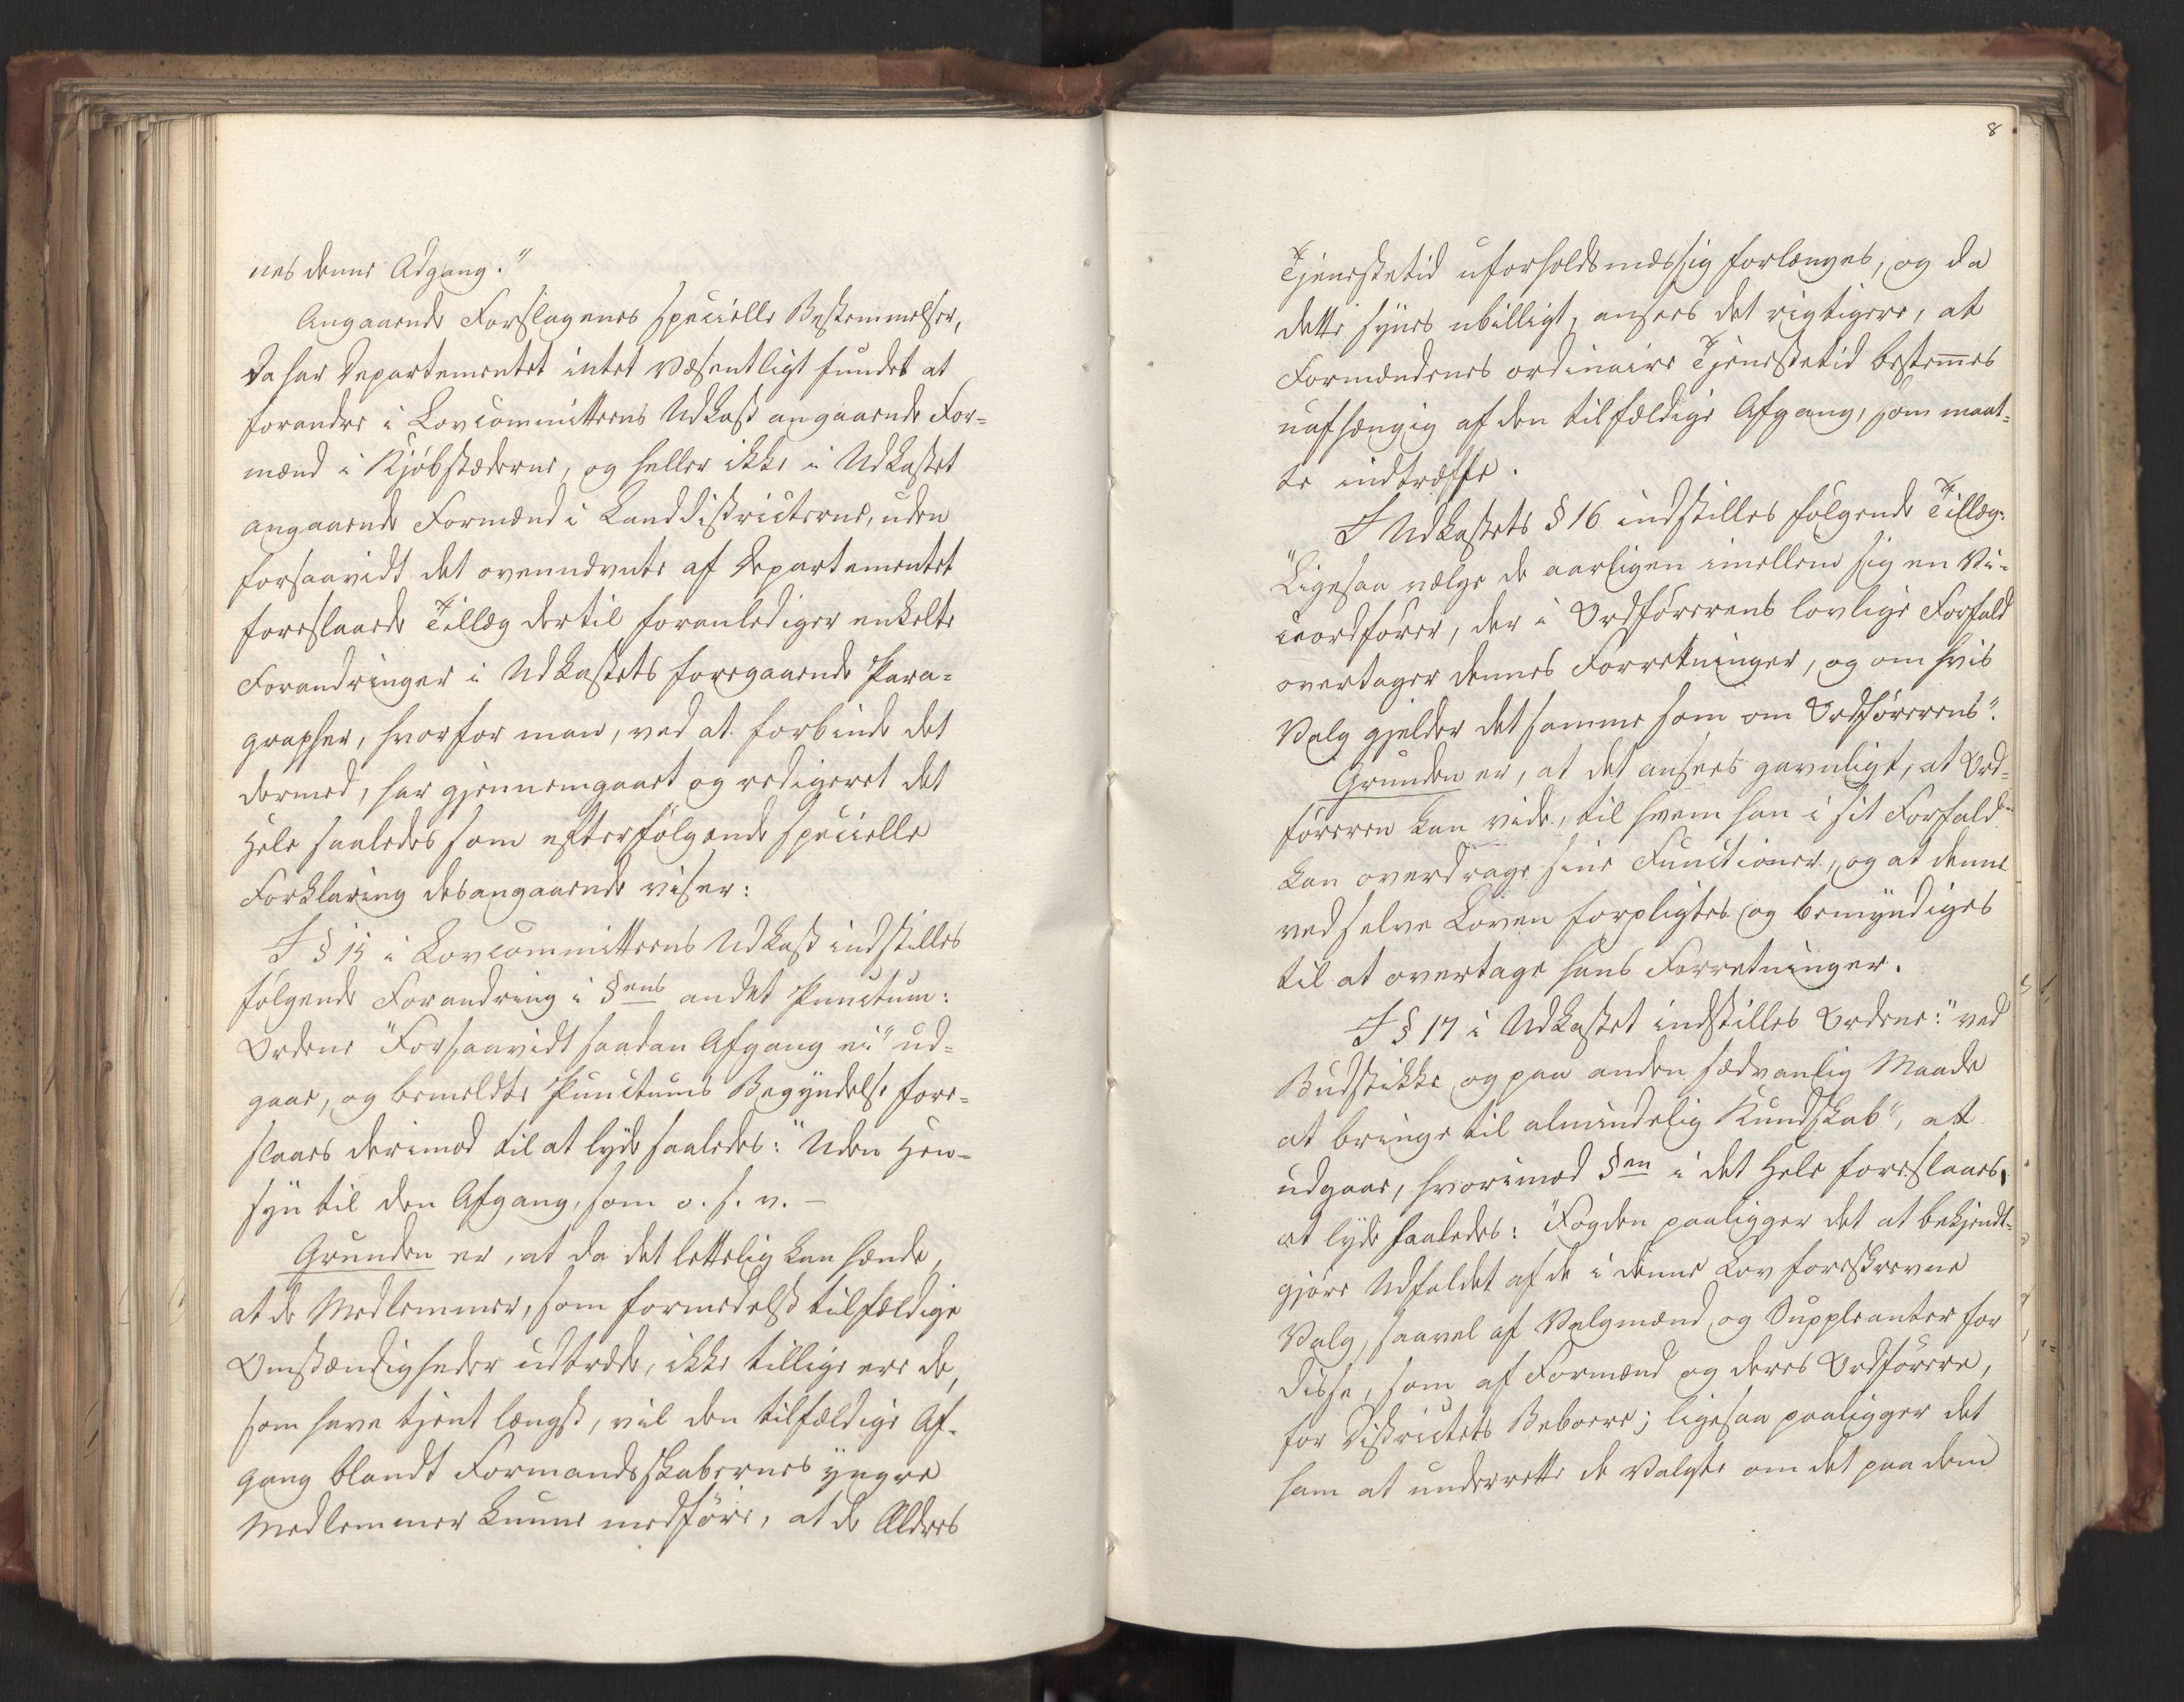 nes denne Adgang."
Angaaende Forslagenes specielle Bestemmelser,
da har Departementet intet væsentligt fundet at
forandre i Lovcommitteens Udkast angaaende For-
mænd i Kjøbstæderne, og heller ikke i Udkastet
angaaende Formænd i Landdistricterne, uden
forsaavidt det ovennævnte af Departementet
foreslaaede Tillæg dertil foranlediger enkelte
Forandringer i Udkastets foregaaende Para-
grapher, hvorfor man, ved at forbinde det
dermed, har gjennemgaaet og redigeret det
Hele saaledes som efterfølgende specielle
Forklaring desangaaende viser:
I § 15 i Lovcommitteens Udkast indstilles
følgende Forandring i §ens andet Punctum:
Ordene "Forsaavidt saadan Afgang ei" ud-
gaae, og bemeldte Punctums Begyndelse fore-
slaaes derimod til at lyde saaledes: "Uden Hen-
syn til den Afgang, som o. s. v. –
Grunden er, at da det lettelig kan hænde,
at de Medlemmer, som formedelst tilfældige
Omstændigheder udtræde, ikke tillige ere de,
som have tjent længst, vil den tilfældige Af-
gang blandt Formandsskabernes yngre
Medlemmer kunne medføre, at de Ældres
8
Tjenestetid uforholdsmæssig forlænges, og da
dette synes ubilligt, ansees det rigtigere, at
Formændenes ordinaire Tjenestetid bestem̅es
uafhængig af den tilfældige Afgang, som maat-
te indtræffe.
I Udkastets § 16 indstilles følgende Tillæg:
"Ligesaa vælge de aarligen imellem sig en Vi-
ceordfører, der i Ordførerens lovlige Forfald
overtager dennes Forretninger, og om hvis
Valg gjelder det samme som om Ordførerens".
Grunden er, at det ansees gavnligt, at Ord-
føreren kan vide, til hvem han i sit Forfald
kan overdrage sine Functioner, og at denne
ved selve Loven forpligtes og bemyndiges
til at overtage hans Forretninger.
I § 17 i Udkastet indstilles Ordene: "ved
Budstikke og paa anden sædvanlig Maade
at bringe til almindelig Kundskab", at
udgaae, hvorimod §en i det Hele foreslaaes,
at lyde saaledes: "Fogden paaligger det at bekjendt-
gjøre Udfaldet af de i denne Lov foreskrevne
Valg, saavel af Valgmænd og Suppleanter for
disse, som af Formænd og deres Ordførere,
for Districtets Beboere; ligesaa paaligger det
ham at underrette de Valgte om det paa dem